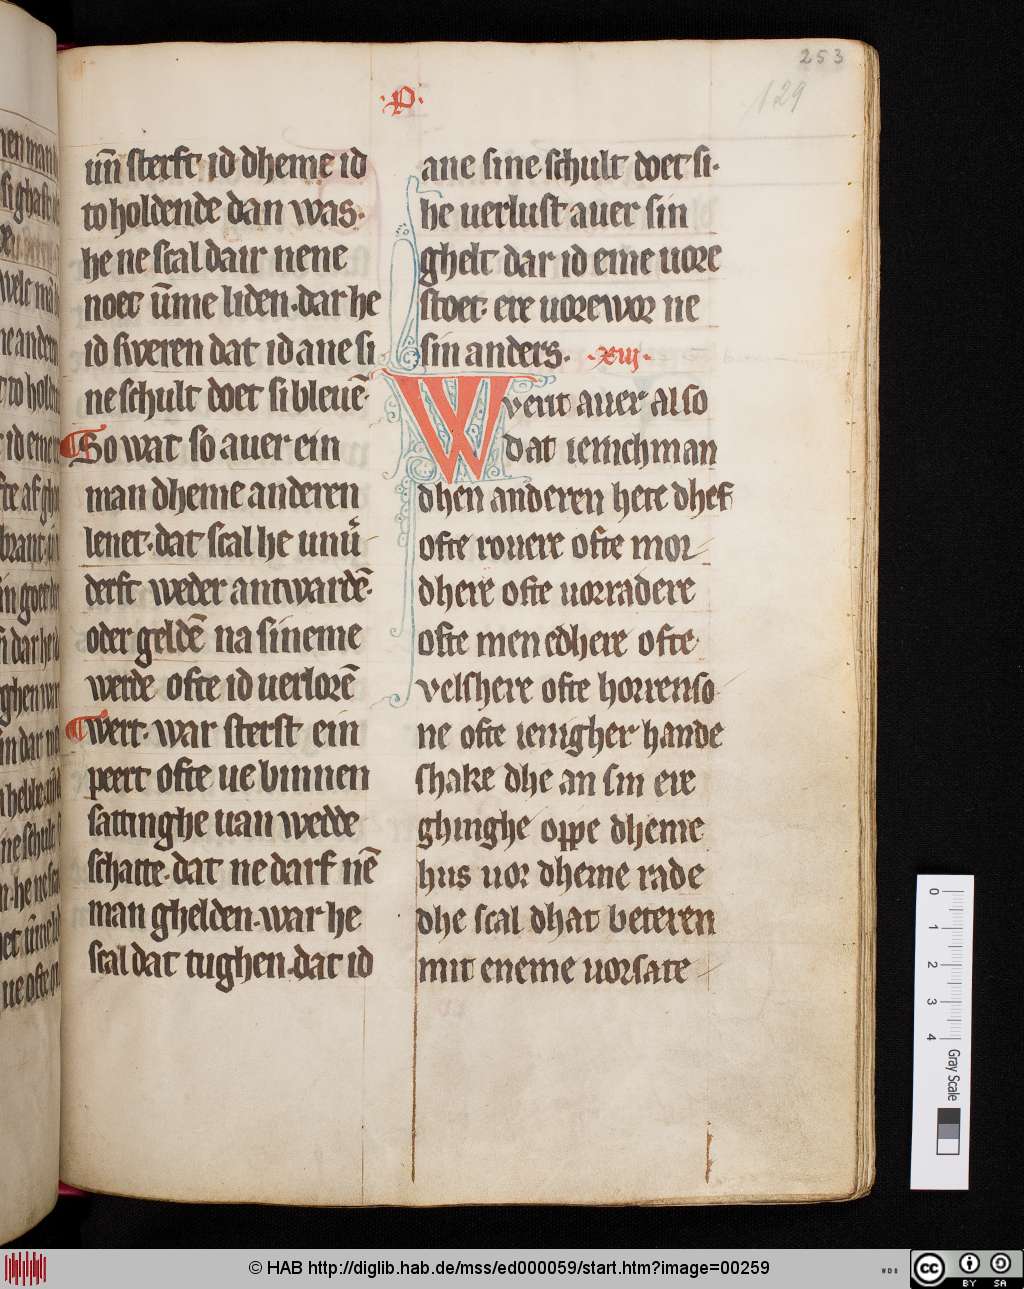 253
129
·p·
un̄ sterft id dheme id
to holdende dan was·
he ne scal dair nene
noet ūme liden·dar he
id sweren dat id ane si
ne schult doet si bleuē·
So wat so auer ein
man dheme anderen
lenet·dat scal he unū
derft weder antwardē·
oder geldē na sineme
werde ofte id uerlorē
wert·war sterft ein
peert ofte ue binnen
sattinghe uan wedde
schatte·dat ne darf nē
man ghelden·war he
scal dat tughen·dat id
ane sine schult doet si·
he uerlust auer sin
ghelt dar id eme uore
stoet· ere uorewor ne
sin anders· ·xiij·
Wvent auer also
dat ienichman
dhen anderen hete dhef
ofte rouere ofte mor
dhere ofte uorradere
ofte men edhere ofte
velshere ofte horrenso
ne ofte ienigher hande
shake dhe an sin ere
ghinghe oppe dheme
hus uor dheme rade
dhe scal dhat beteren
mit eneme uorsate
0 1 2 3 4
Gray Scale
© HAB http://diglib.hab.de/mss/ed000059/start.htm?image=00259
WDB
cc BY SA